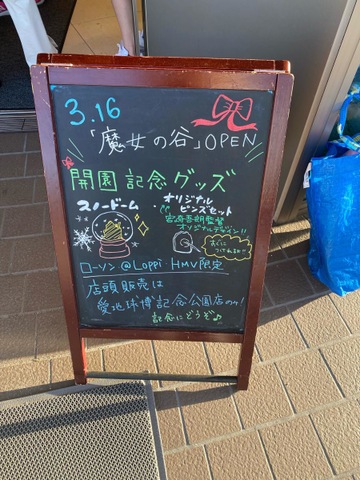 3.16
「魔女の谷」OPEN
開園記念グッズ
スノードーム
オリジナル
ピンズセット
宮崎吾朗監督
オリジナルデザイン!!
すぐに
つけれる!!
ローソン @Loppi・HMV限定
店頭販売は
愛地球博記念公園店のみ!
記念にどうぞ♪